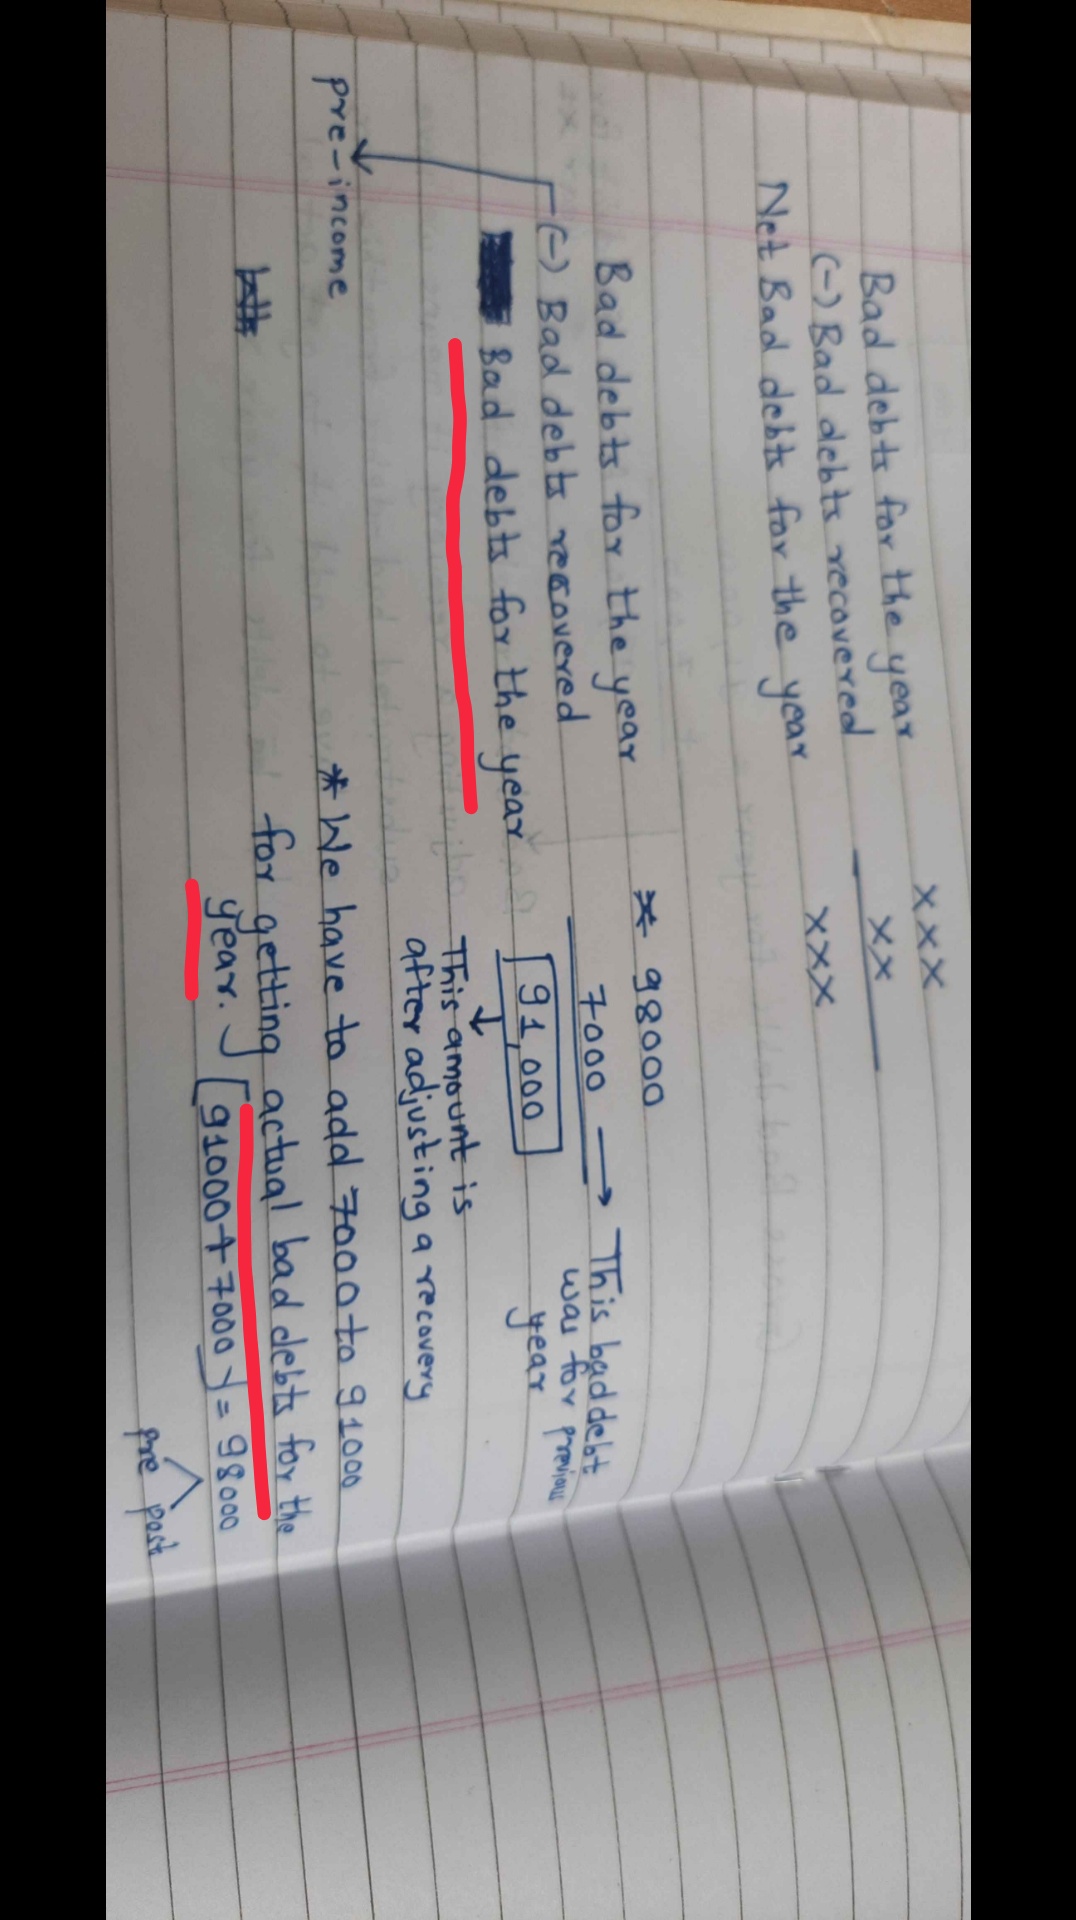 Bad debts for the year xxx
(-) Bad debts recovered xx
Net Bad debts for the year xxx
Bad debts for the year * 98000
(-) Bad debts recovered 7000 → This bad debt
was for previous
year
Bad debts for the year 91,000
↓
This amount is
after adjusting a recovery
pre-income
* We have to add 7000 to 91000
for getting actual bad debts for the
year. [91000+7000] = 98000
pre post